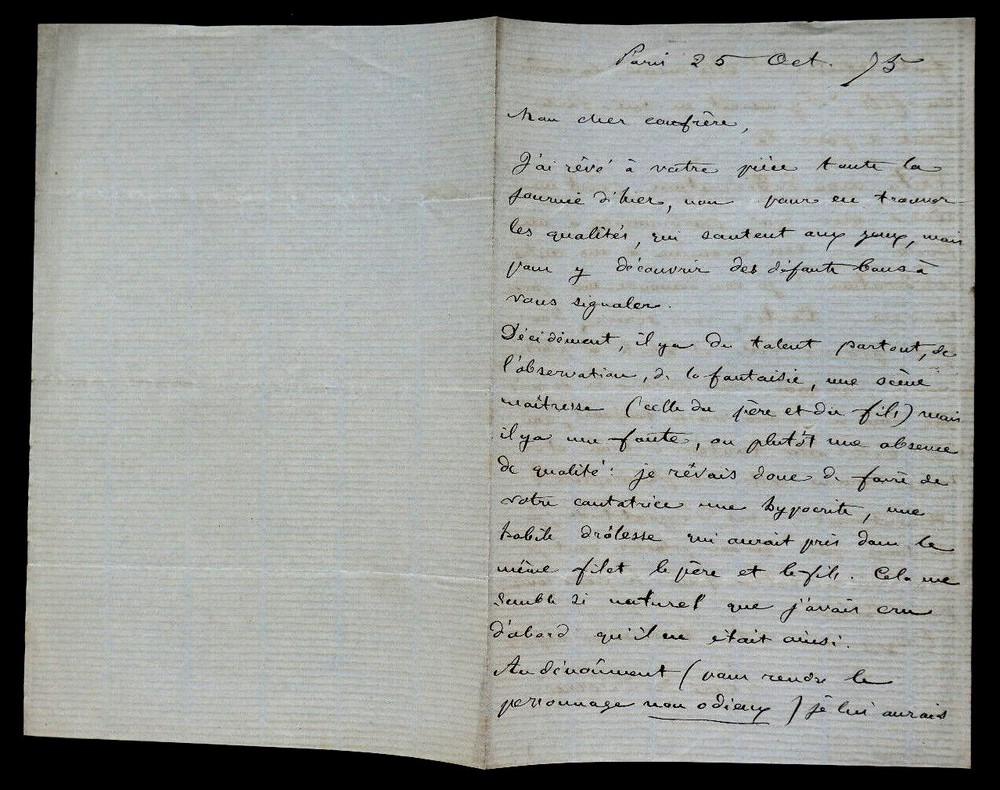 Paris 25 Oct. 75
Mon cher confrère,
J'ai rêvé à votre pièce toute la
journée d'hier, non pour en trouver
les qualités, qui sautent aux yeux, mais
pour y découvrir des défauts bons à
vous signaler.
Décidément, il y a du talent partout, de
l'observation, de la fantaisie, une scène
maîtresse (celle du père et du fils) mais
il y a une faute, ou plutôt une absence
de qualité : je rêvais donc de faire de
votre cantatrice une hypocrite, une
habile drôlesse qui aurait pris dans le
même filet le père et le fils. Cela me
semble si naturel que j'avais cru
d'abord qu'il en était ainsi.
Au dénoûment (pour rendre le
personnage non odieux) je lui aurais